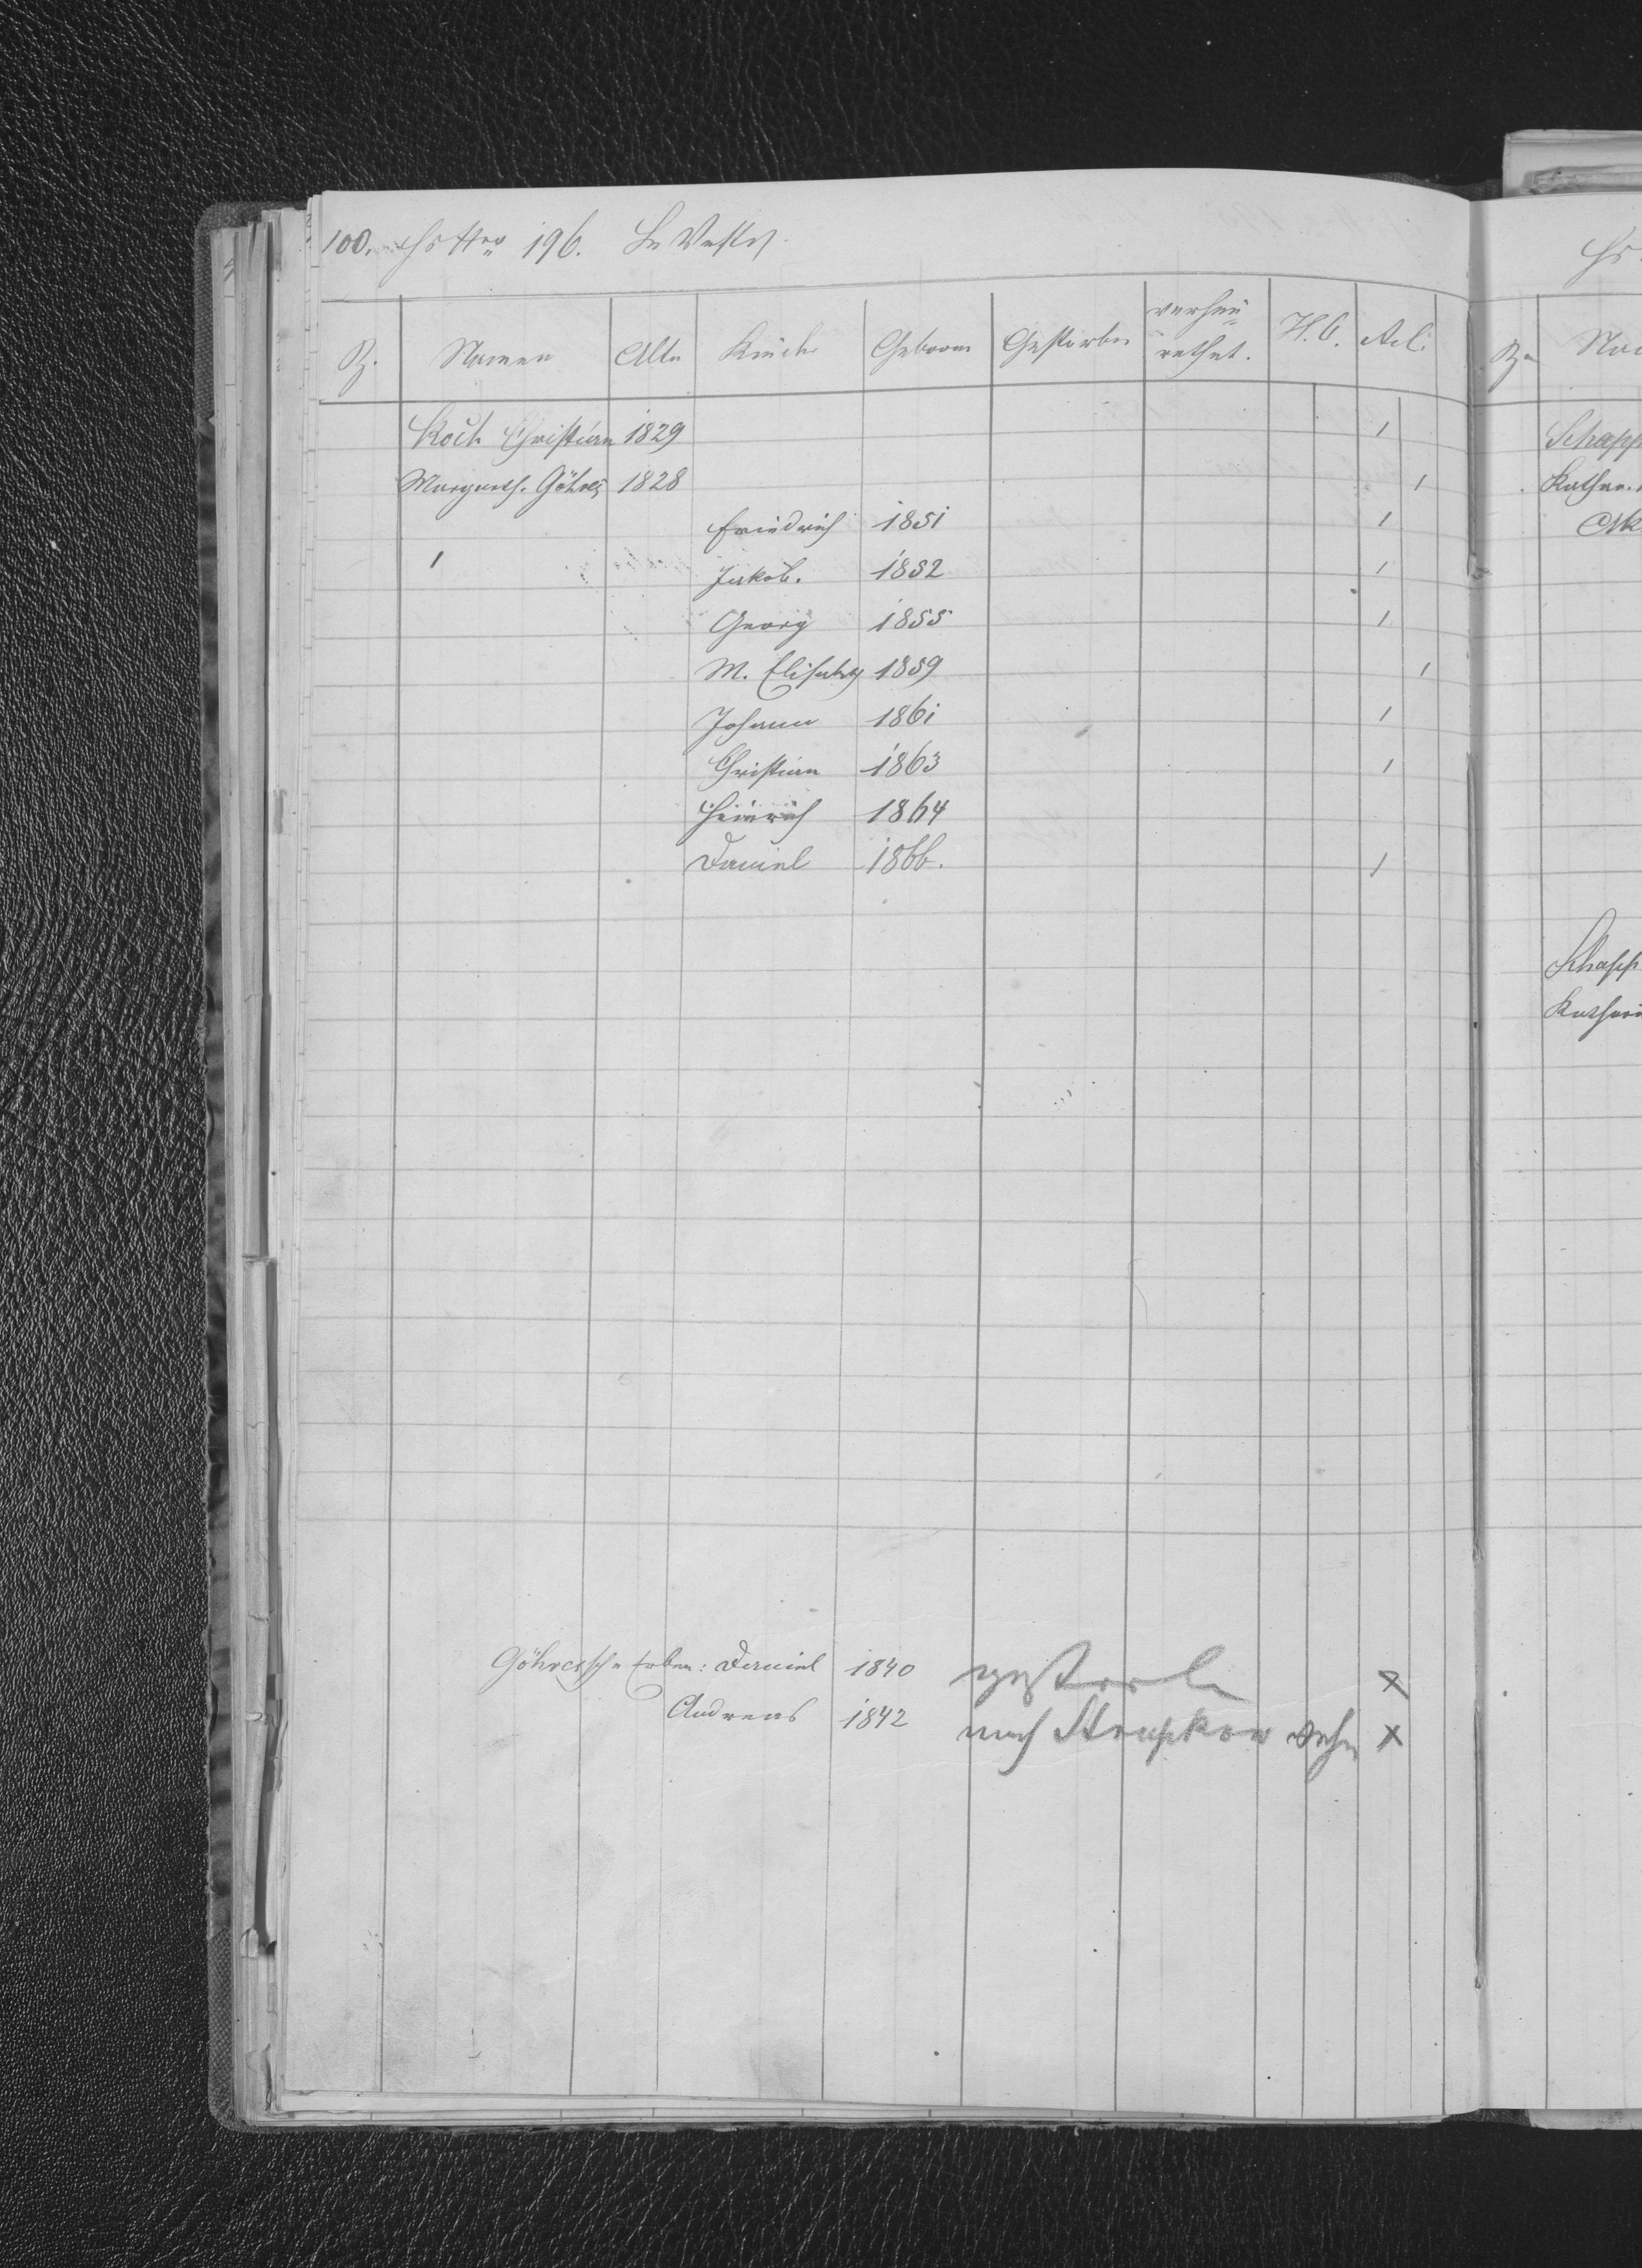 100. Hs Nro 196.
Z. Namen Alter Kinder Geboren Gestorben verheu=
rathet. H. C. A.C.
Koch Christian 1829 1
Margareth. Göhres 1828 1
Friedrich 1851 1
1 Jakob. 1852 1
Georg 1855 1
M. Elisabeth 1859 1
Johann 1861 1
Christian 1863 1
Heinrich 1864
Daniel 1866. 1
Göhresche Erben: Daniel 1840 gestorben x
Andreas 1842 nach x
Hs
Z. Na
Schapp
Kathar.
Schapp
Kathari